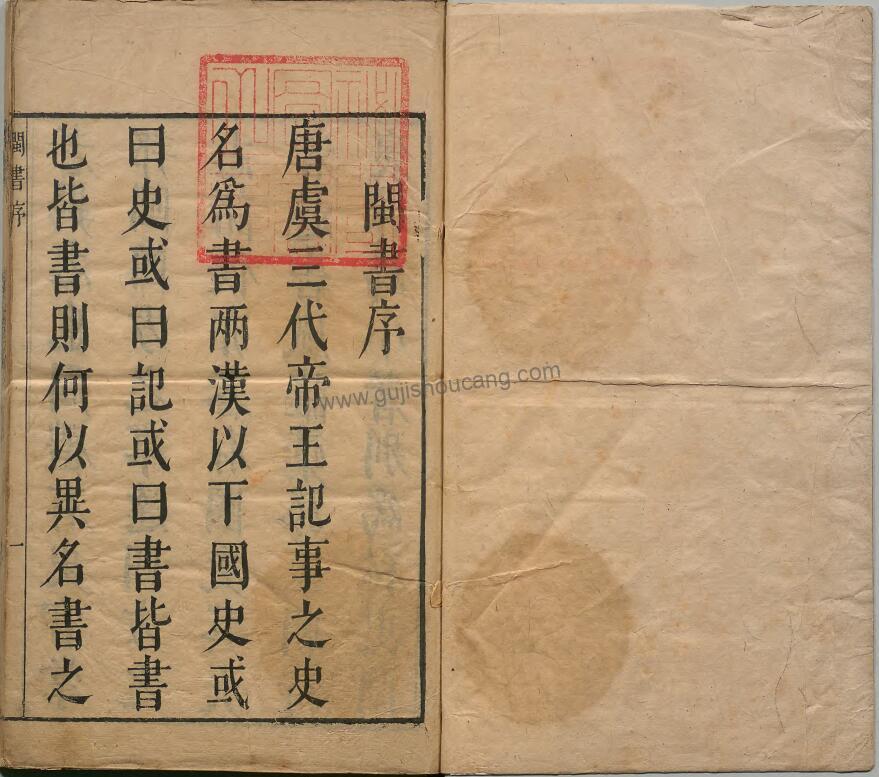 閩書序
唐虞三代帝王記事之史
名爲書两漢以下國史或
曰史或曰記或曰書皆書
也皆書則何以異名書之
閩書序
一
www.gujishoucang.com